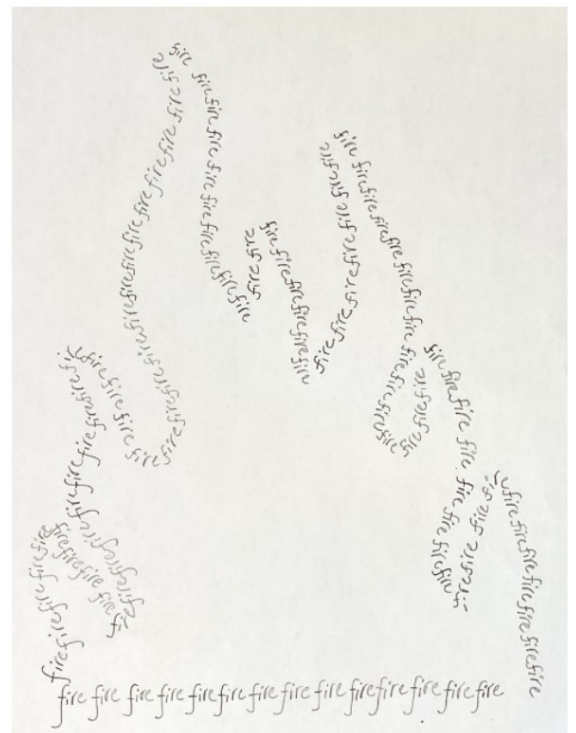 firefirefire fire firefire
fire fire fire fire fire
fire fire fire fire fire fire fire fire fire
fire fire fire fire fire
fire fire fire fire fire fire fire fire fire fire fire fire
fire fire fire fire fire fire fire fire fire fire
fire fire fire
fire fire fire fire fire fire
fire fire fire fire fire fire fire fire
fire fire fire fire fire fire fire fire fire fire fire fire
fire fire fire
fire fire fire fire fire fire fire fire
fire fire fire fire
fire fire fire fire fire fire fire
fire fire fire fire firefire fire fire fire firefire fire firefire